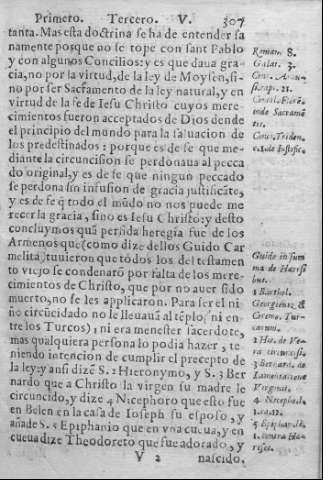 Primero. Tercero. V. 307
tanta. Mas esta doctrina se ha de entender sa
namente posque no se tope con sant Pablo
y con algunos Concilios: y es que daua gra-
cia, no por la virtud, de la ley de Moysen, si-
no por ser Sacramento de la ley natural, y en
virtud de la fe de Iesu Christo cuyos mere-
cimientos fueron acceptados de Dios dende
el principio del mundo para la saluacion de
los predestinados: porque es de fe que me-
diante la circuncision se perdonaua al pecca
do original, y es de fe que ningun peccado
se perdona sin infusion de gracia justificãte,
y es de fe q̃ todo el mũdo no nos puede me
recer la gracia, sino es Iesu Christo: y desto
concluymos quã perfida heregia fue de los
Armenos que (como dize dellos Guido Car
melita) tuuieron que todos los del testamen
to viejo se condenarõ por falta de los mere-
cimientos de Christo, que por no auer sido
muerto, no se les applicaron. Para ser el ni-
ño circũcidado no le lleuauã al tẽplo, ni en-
tre los Turcos, ni era menester sacerdote,
mas qualquiera persona lo podia hazer, te-
niendo intencion de cumplir el precepto de
la ley: y ansi dizẽ S. 2 Hieronymo, y S. 3 Ber
nardo que a Christo la virgen su madre le
circuncido, y dize 4 Nicephoro que esto fue
en Belen en la casa de Ioseph su esposo, y
añade S. 5 Epiphanio que en vna cueua, y en
cueua dize Theodoreto que fue adorado, y
V 2 nascido.
Roman. 8.
Galat. 3.
Conc.
21.
Concil. Florẽ.
Sacramẽ
Conc. Triden.
Guido in sum
ma de Hæresi
bus.
1 Barthol.
Georgieuiz &
Turcarum.
2 Ve-
ra circuncisi.
3 Bernard. de
Lamentatione
Virginis.
4 Nicephol.
1. ca. 12.
5 Epiph.
1. contra Hæ-
reses.